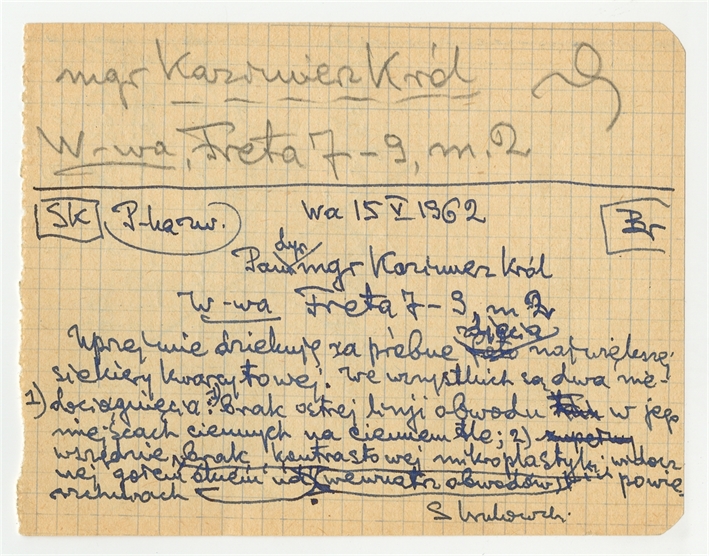 mgr Kazimierz Król
W-wa, Freta 7-9, m. 2
SK P-ką zw. Wa 15 V 1962 Br
dyr.
Pan mgr Kazimierz Król
W-wa Freta 7-9, m 2
zdjęcia
Uprzejmie dziękuję za próbne największej
siekiery kwarcytowej. We wszystkich są dwa nie-
dociągnięcia: 1) brak ostrej linji obwodu w jego
miejscach ciemnych na ciemnem tle; 2)
wszędzie brak kontrastowej mikroplastyki widocz
nej gołem okiem (wewnątrz obwodów) powie
rzchniach
S Krukowski.